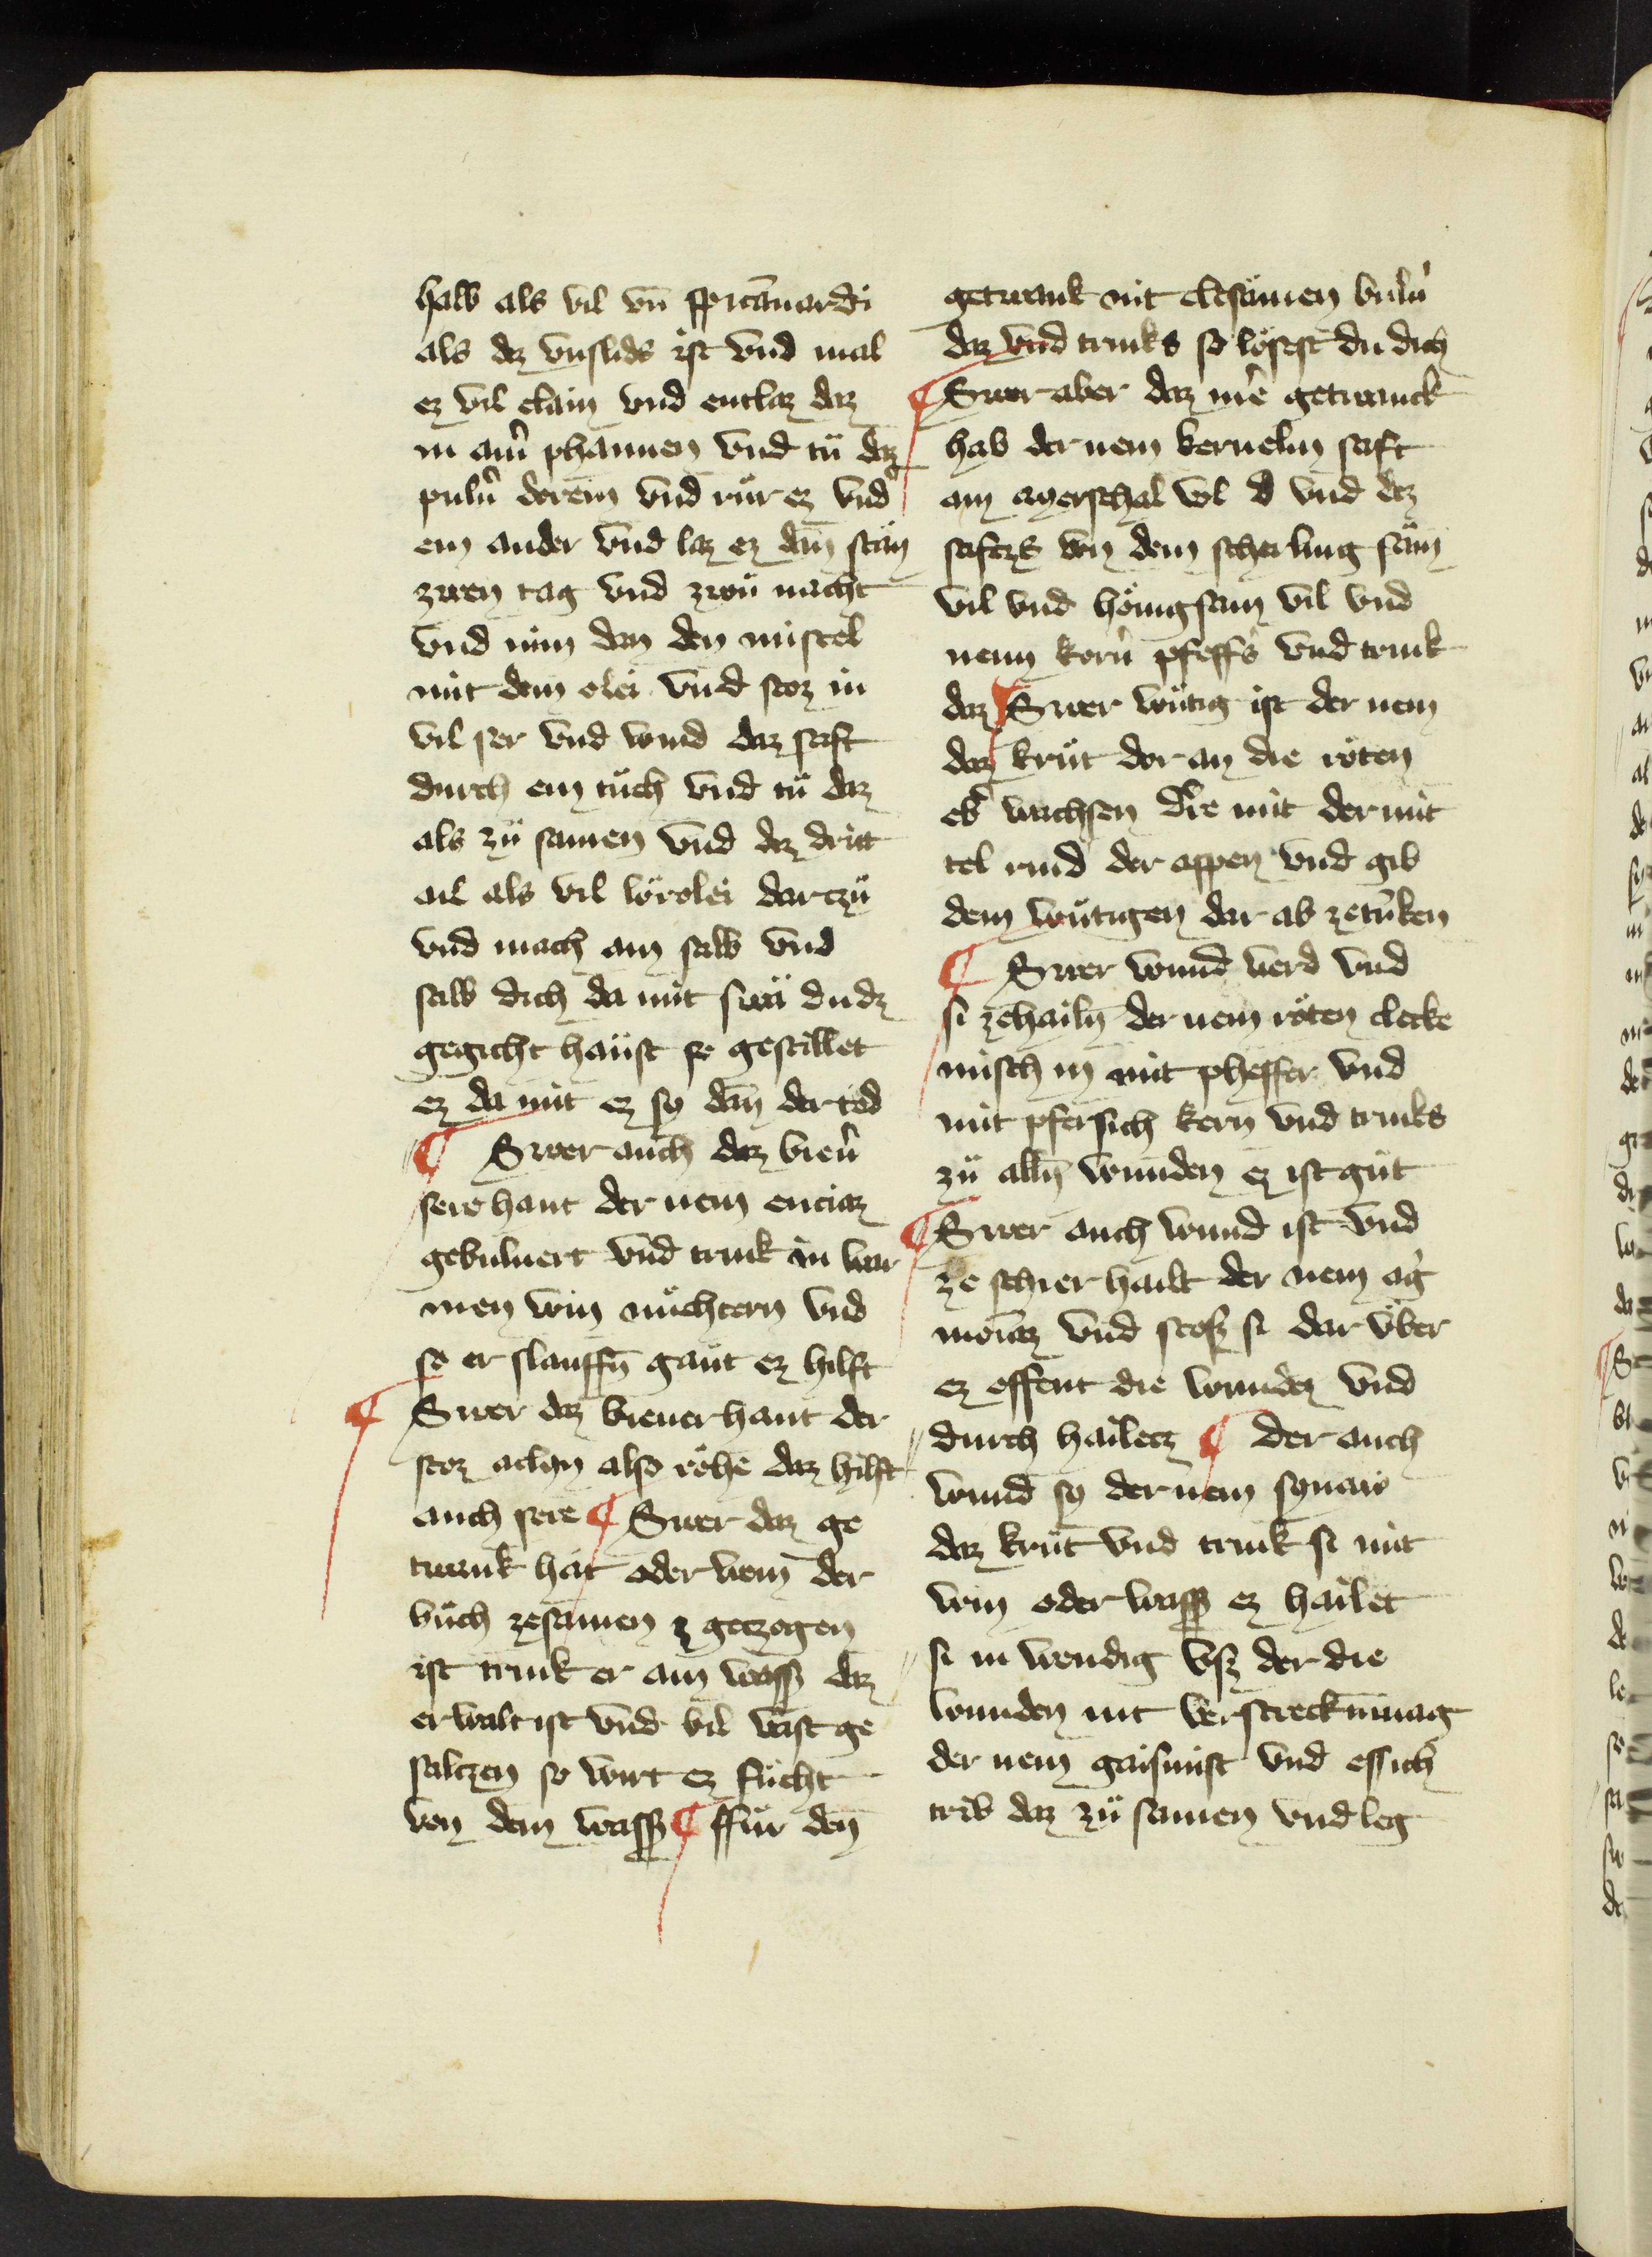 halb als vil vn̄ spicanardi
als dez vnslids ist vnd mal
ez vil clain vnd entlaz daz
in ain̾ phannen vnd tů daz
pulu̾ dorein vnd rür ez vnd̾
ein ander vnd laz ez dan̄ stän
zwen tag vnd zwů nacht
vnd nim dan den mistel
mit dem olei vnd stoz in
vil ser vnd wind daz saft
durch ein tůch vnd tů daz
als zů samen vnd dez dritt
ail als vil lörolei dartzů
vnd mach ain salb vnd
salb dich da mit swä du dz
gegicht haüst so gestillet
ez da mit ez sy dan̄ der tod
¶ Swer auch daz vieu̾
sere haut der nem encian
gebuluert vnd trink in war
men win nüchtern vnd
so er slauffn̄ gaüt ez hilft
¶ Swer daz vieuer haut der
stoz aclyn also röhe daz hilft
auch sere ¶ Swer daz ge
twank hat oder wem der
buch zesamen getzogen
ist trink er ain wass̾ daz
erwalt ist vnd vil vast ge
saltzen so wirt ez fücht
von dem wass̾ ¶ ffür den̄
getwank nit cletsämen bulu̾
daz vnd trinks so lösest du dich
¶ Swer aber daz mere getwanck
hab der nem kernelin saft
ain ayerschal vol vnd dez
saftzs von dem scherling säm
vil vnd hönigsam vil vnd
neun korn̾ pfeffs̾ vnd trink
daz ¶ Swer wütig ist der nem
daz krut dor an die röten
eb̾ wachsen die mit der mit
tel rind der aspen vnd gib
dem wütigen dar ab zetrīken
¶ Swer wund werd vnd
si zehailn̄ der nem röten clecke
misch in mit pheffer vnd
mit pfersich kern vnd trinks
zů alln̄ wunden ez ist gůt
¶ Swer auch wund ist vnd
ze schier hailt der nem ag̾
montz vnd stosz si dar über
ez effent die wunden vnd
durch hailetz ¶ der auch
wund sy der nem synaw
daz krut vnd trink si mit
win oder wass̾ ez hailet
si in wendig vsz der die
wunden nit verstrecken mag
der nem gaismist vnd essich
trib daz zů samen vnd leg